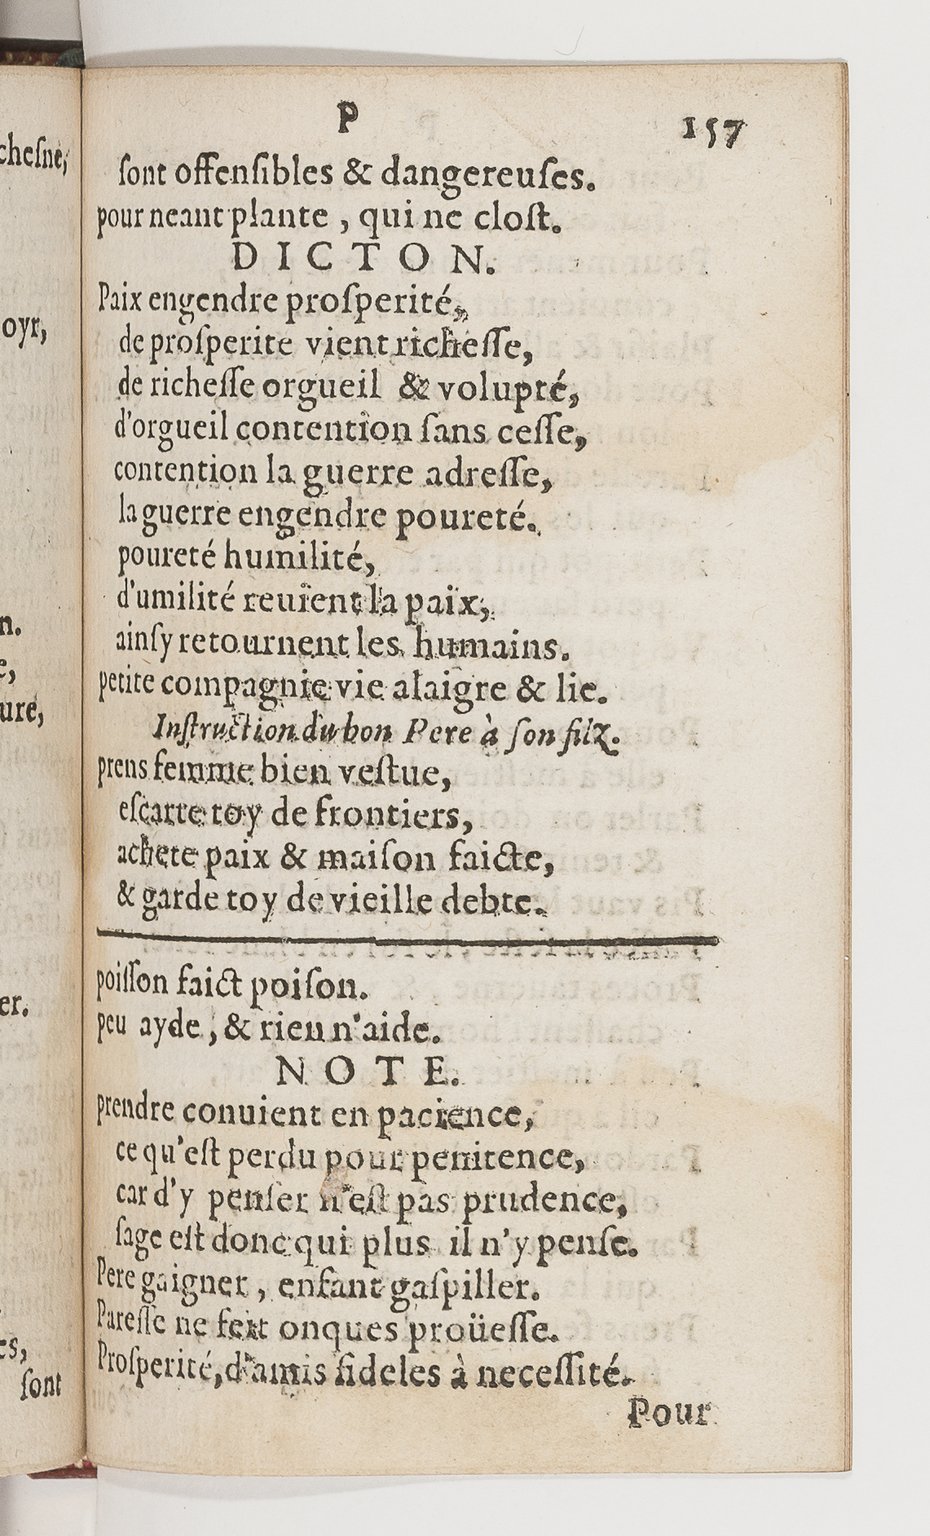 P
157
ſont offenſibles & dangereuſes.
pour neant plante , qui ne cloſt.
DICTON.
Paix engendre proſperité,
de proſperite vient richeſſe,
de richeſſe orgueil & volupté,
d'orgueil contention ſans ceſſe,
contention la guerre adreſſe,
la guerre engendre poureté.
poureté humilité,
d'umilité reuient la paix,
ainſy retournent les humains.
petite compagnie vie alaigre & lie.
Inſtruction du bon Pere à ſon filz.
prens femme bien veſtue,
eſcarte toy de frontiers,
achete paix & maiſon faicte,
& garde toy de vieille debte.
poiſſon faict poiſon.
peu ayde , & rien n'aide.
NOTE.
prendre conuient en pacience,
ce qu'eſt perdu pour penitence,
car d'y penſer n'eſt pas prudence,
ſage eſt donc qui plus il n'y penſe.
Pere gaigner , enfant gaſpiller.
Pareſſe ne feit onques proüeſſe.
Proſperité, d'amis fideles à neceſſité.
Pour
cheſne,
oyr,
n.
ure,
er.
es,
ſont